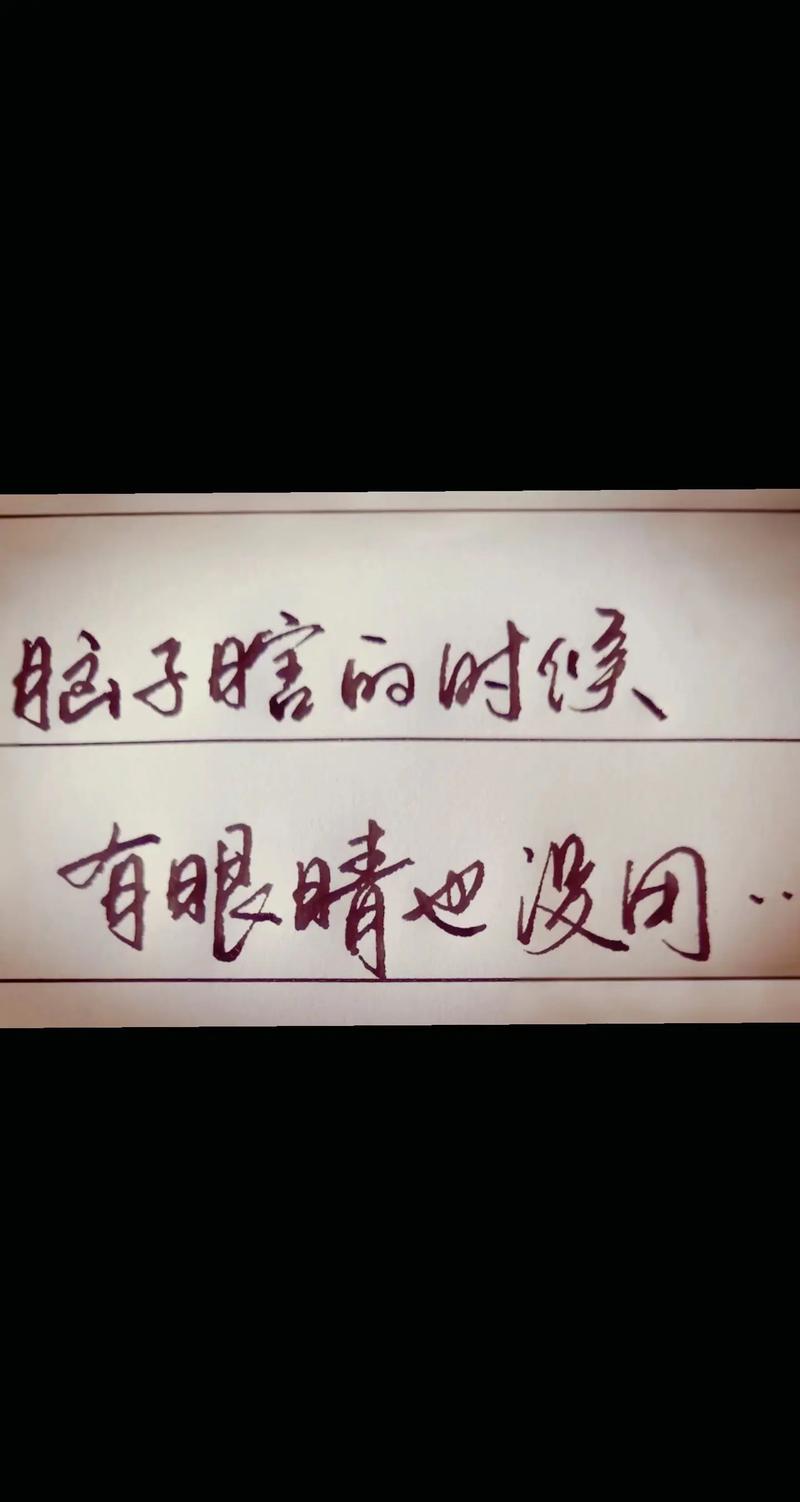 脑子瞎的时候
有眼睛也没用··